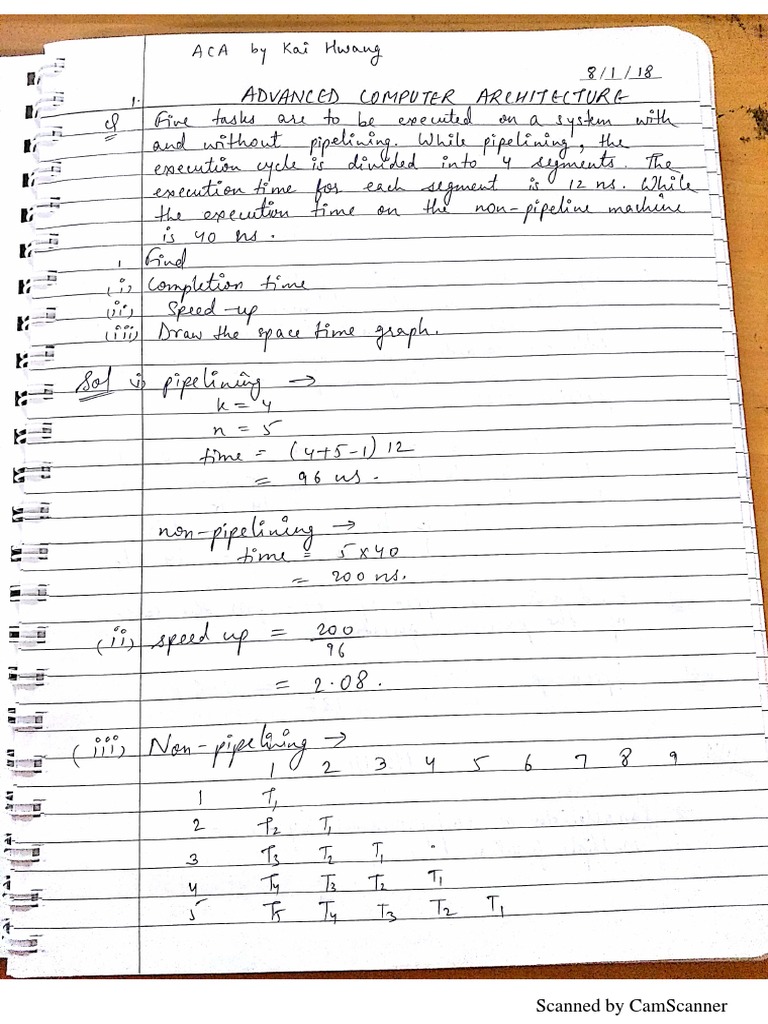 ACA by Kai Hwang
8/1/18
1. ADVANCED COMPUTER ARCHITECTURE
Q Five tasks are to be executed on a system with
and without pipelining. While pipelining, the
execution cycle is divided into 4 segments. The
execution time for each segment is 12 ns. While
the execution time on the non-pipeline machine
is 40 ns.
Find
(i) Completion time
(ii) Speed-up
(iii) Draw the space time graph.
Sol i) pipelining →
k = 4
n = 5
time = (4+5-1) 12
= 96 ns.
non-pipelining →
time = 5 x 40
= 200 ns.
(ii) speed up = 200
96
= 2.08.
(iii) Non-pipelining →
1 2 3 4 5 6 7 8 9
1 T1
2 T2 T1
3 T3 T2 T1
4 T4 T3 T2 T1
5 T5 T4 T3 T2 T1
Scanned by CamScanner